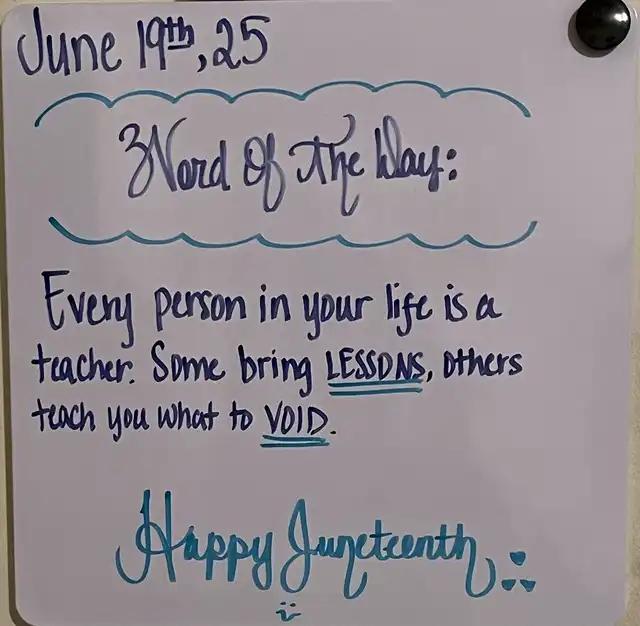 June 19th, 25
Word Of The Day:
Every person in your life is a
teacher. Some bring LESSONS, others
teach you what to VOID.
Happy Juneteenth